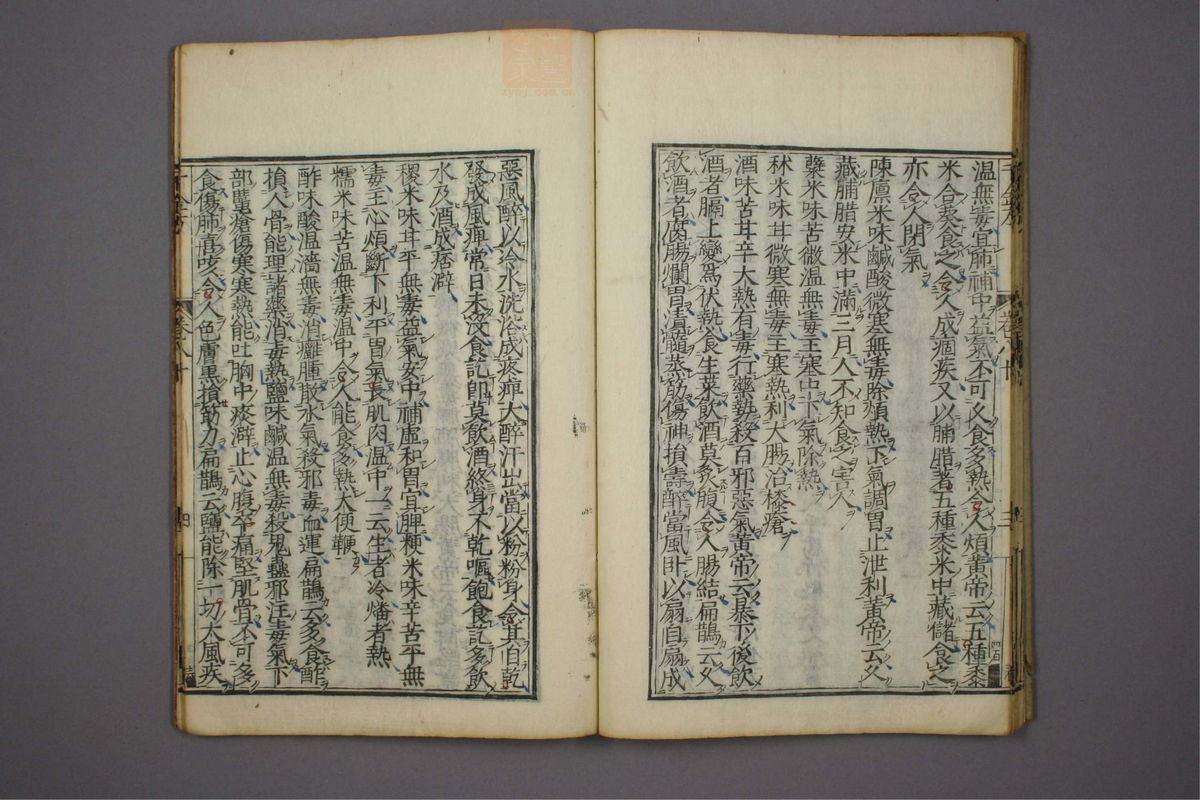 温無毒宜肺補中益氣不可久食多熱令人煩黃帝云五種黍
米合葵食之令人成痼疾又以脯腊著五種黍米中藏儲食之
亦令人閉氣
陳廩米味鹹酸微寒無毒除煩熱下氣調胃止泄利黃帝云久
藏脯腊安米中滿三月人不知食之害人
蘖米味苦微溫無毒主寒中下氣除熱
秫米味甘微寒無毒主寒熱利大腸治漆瘡
酒味苦甘辛大熱有毒行藥勢殺百邪惡氣黃帝云暴下後飲
酒者膈上變爲伏熱食生菜飲酒莫炙腹令人腸結扁鵲云久
飲酒者腐腸爛胃漬髓蒸筋傷神損壽醉當風臥以扇自扇成
惡風醉以冷水洗浴成疼痺大醉汗出當以粉粉身令其自乾
發成風痺常日未沒食訖即莫飲酒終身不乾嘔飽食訖多飲
水及酒成痞澼
稷米味甘平無毒益氣安中補虛和胃宜脾粳米味辛苦平無
毒主心煩斷下利平胃氣長肌肉溫中一云生者冷燔者熱
糯米味苦溫無毒溫中令人能食多熱大便鞕
酢味酸溫濇無毒消癰腫散水氣殺邪毒血運扁鵲云多食酢
損人骨能理諸藥消毒熱鹽味鹹溫無毒殺鬼蠱邪注毒氣下
部䘌瘡傷寒寒熱能吐胸中痰澼止心腹卒痛堅肌骨不可多
食傷肺喜咳令人色膚黑損筋力扁鵲云鹽能除一切大風疾